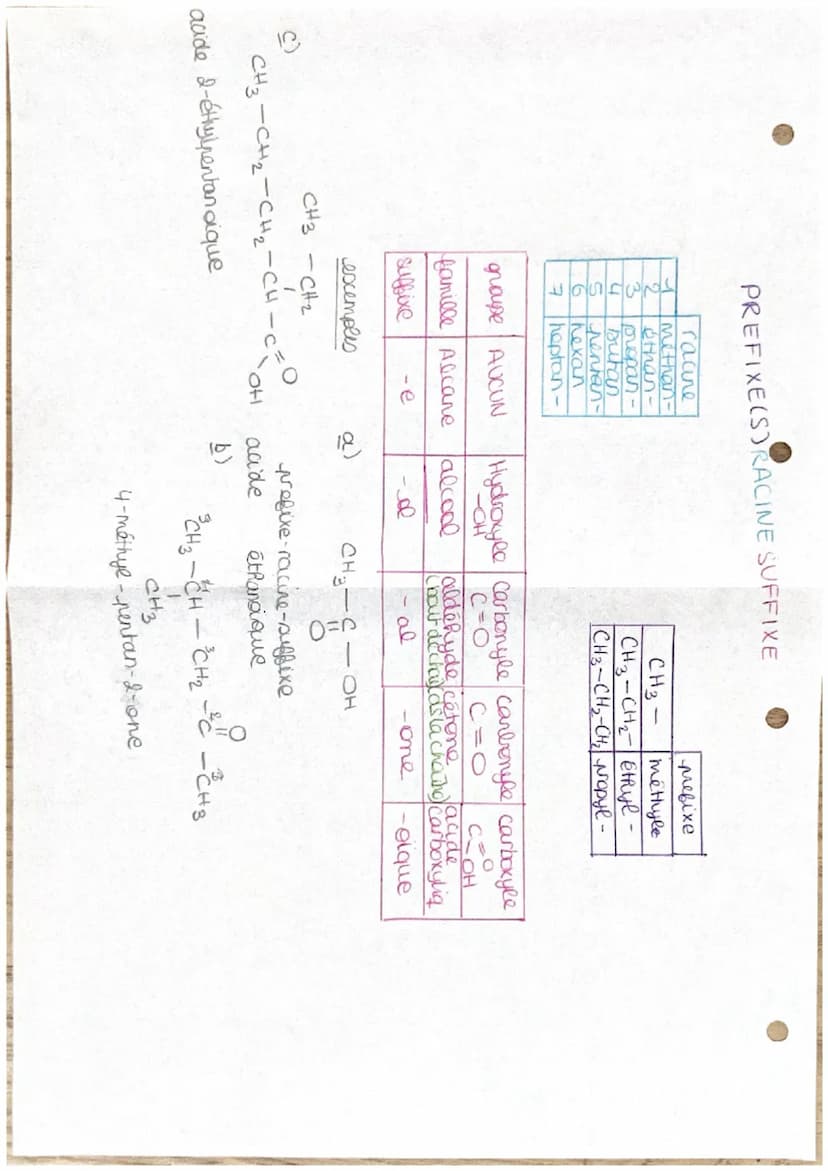 PREFIXE(S) RACINE SUFFIXE
racine
1 méthan-
2 éthan-
3 propan-
4 butan
5 pentan-
6 hexan
7 heptan-
prefixe
CH3 - méthyle
CH3-CH2- éthyl-
CH3-CH2-CH2 propyl-
groupe AUCUN Hydroxyle -OH carbonyle C=O carbonyle C=O carboxyle C=O OH
famille Alcane alcool aldéhyde (bout de chaîne) cétone (ds la chaîne) acide carboxyliq
suffixe -e -ol -al -one -oique
exemples
a) CH3-C-OH
O
prefixe-racine-suffixe
acide éthanoique
b)
O
CH3-CH-CH2-C-CH3
CH3
4-méthyl-pentan-2-one
c)
CH3-CH2
CH3-CH2-CH2-CH-C=O
OH
acide 2-éthylpentanoique